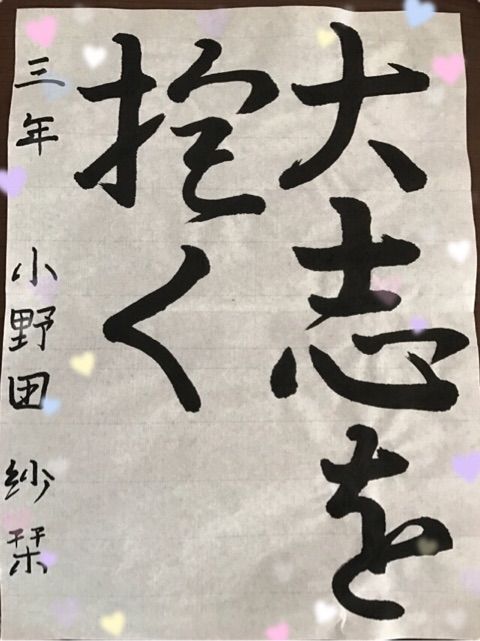 大志を
抱く
三年 小野田 紗栞